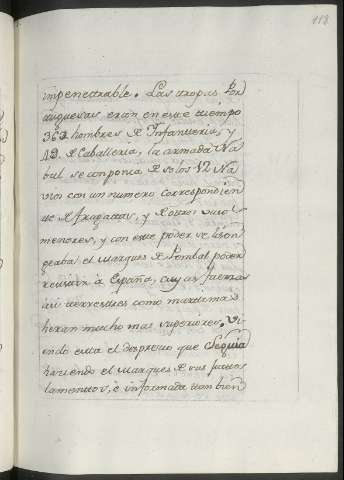 118
impenetrable. Las tropas Por
tuguesas eran en este tiempo
36D hombres de Infanteria, y
4D. de Caballeria, la armada Na
bal se conponia de solos 12 Na
vios con un numero correspondien
te de fragatas, y de otros
menores, y con este poder se lison
geaba el Marques de Pombal poder
resistir à España, cuyas fuerzas
asi terrestres como maritimas
heran mucho mas superiores. Vi
endo esta el desprecio que seguia
haciendo el Marques de sus
lamentos, è informada tambien